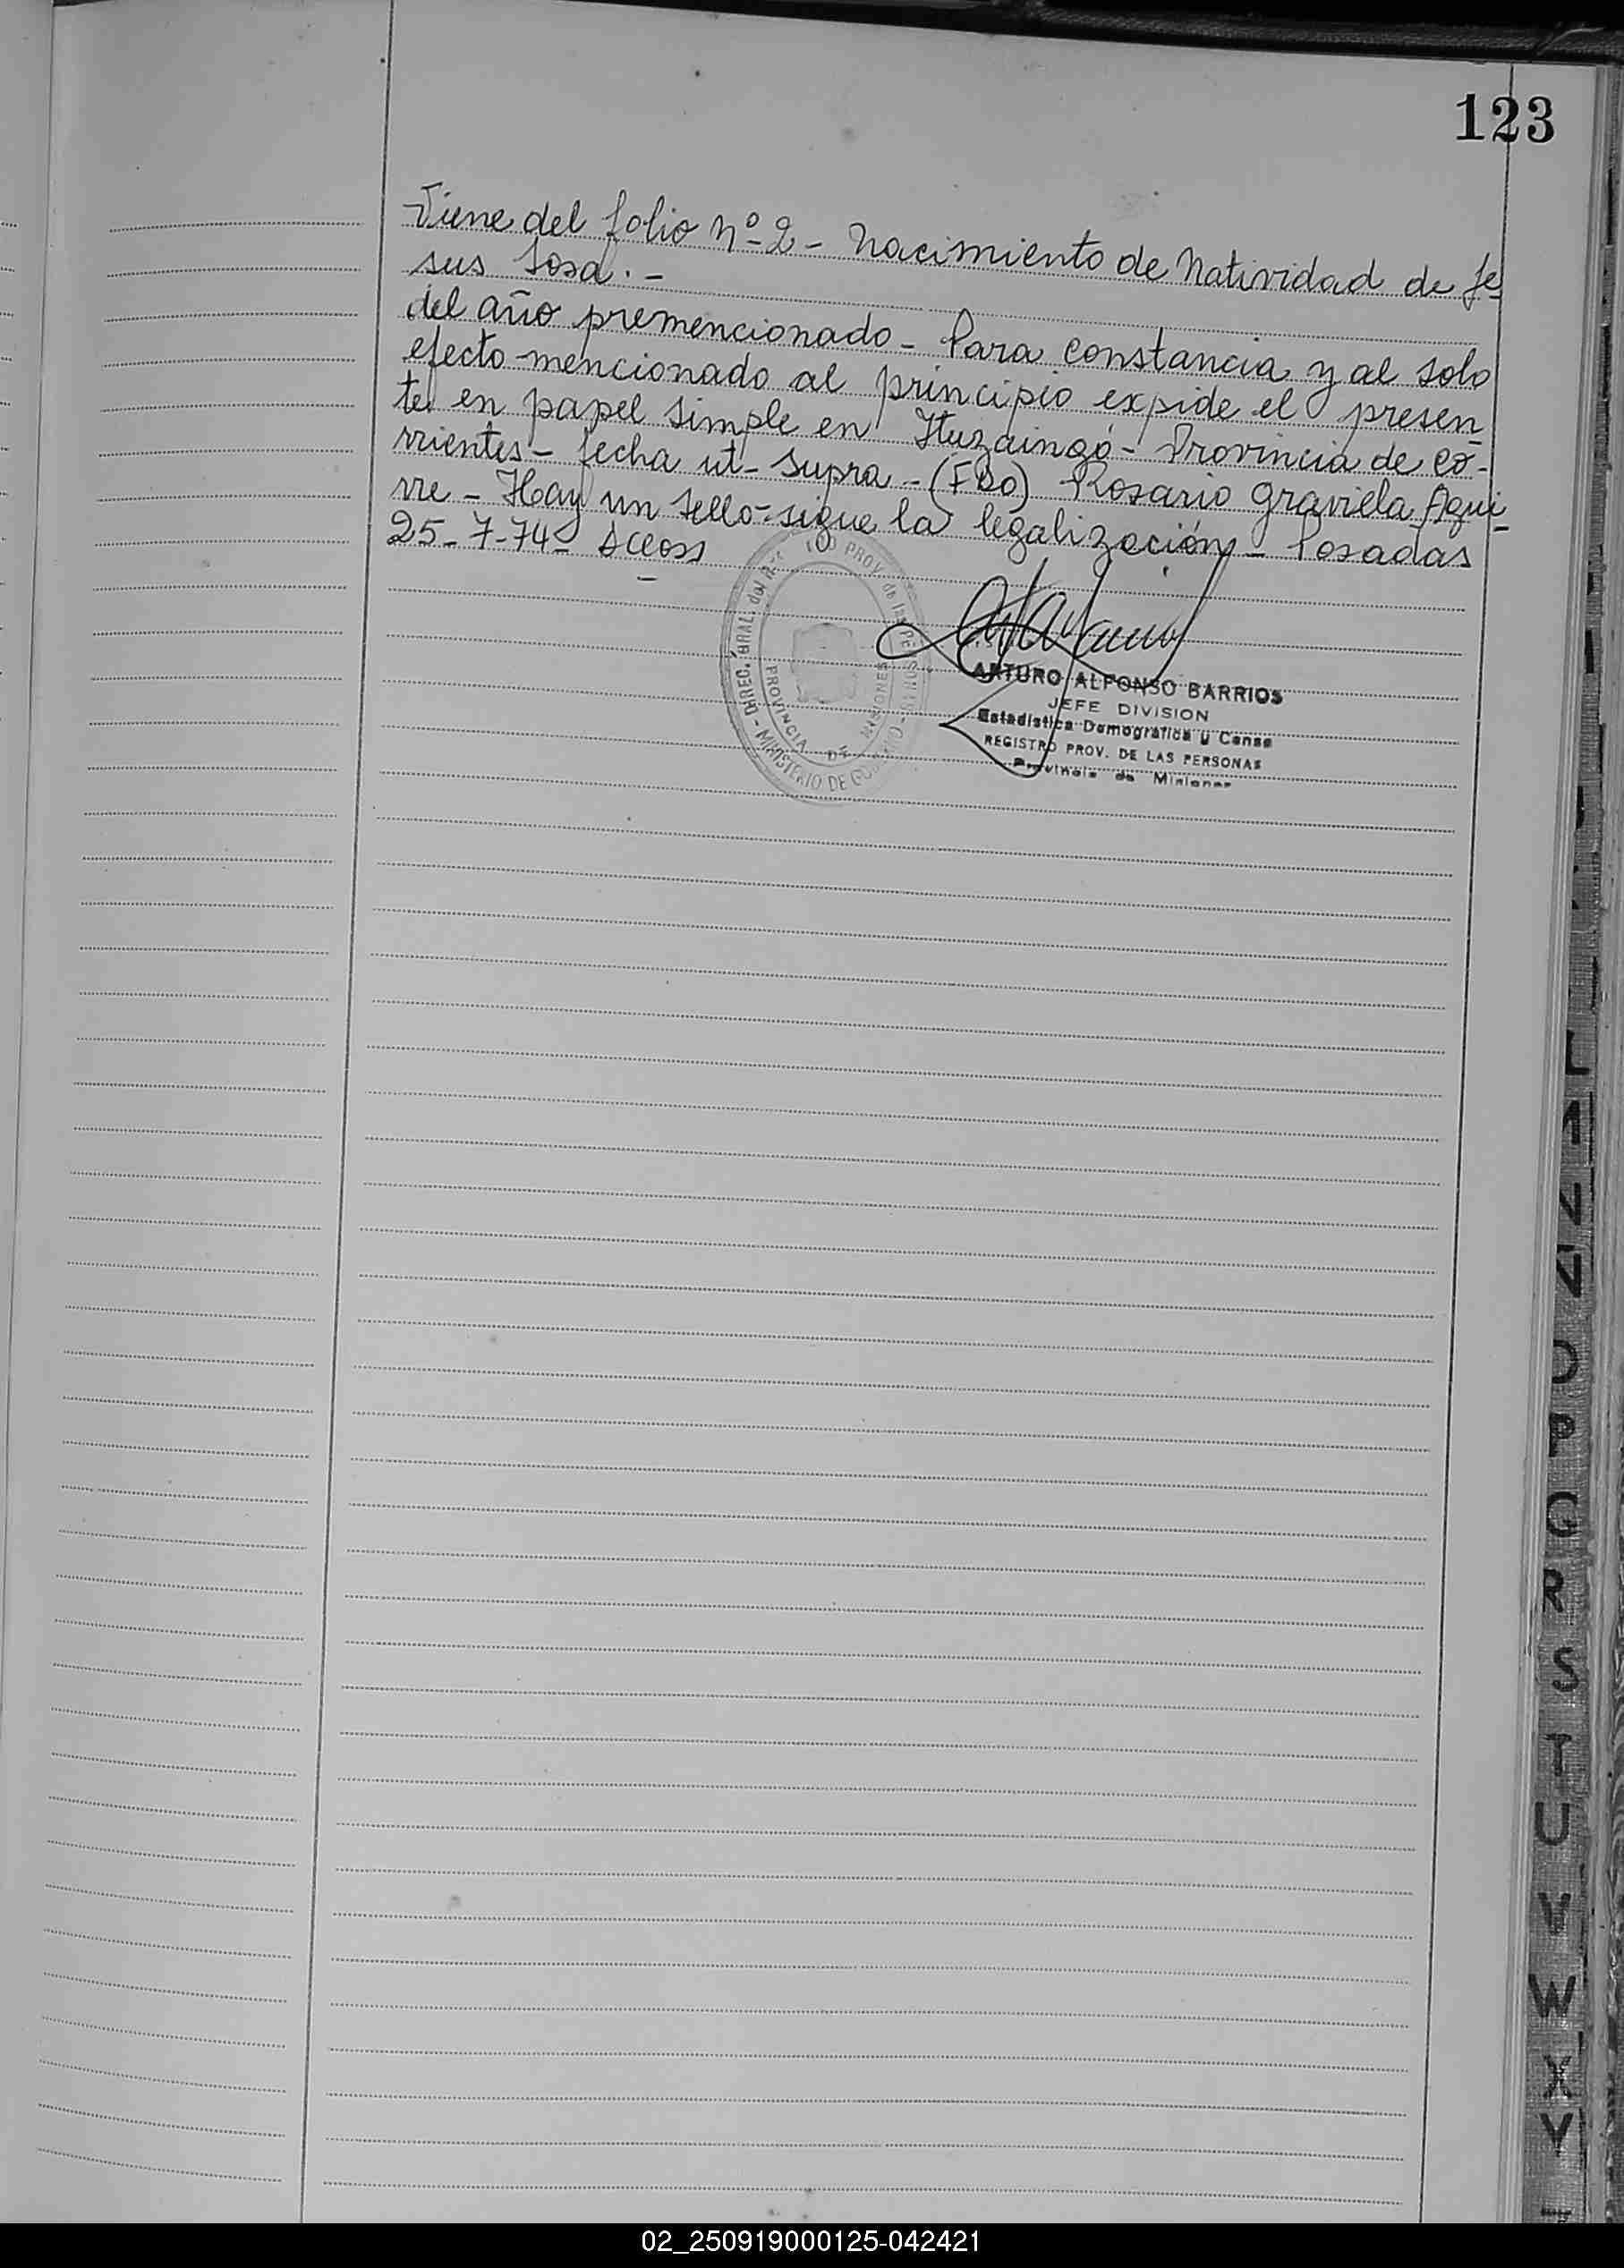 123
Viene del folio Nº 2 - Nacimiento de Natividad de Je
sus Sosa. -
del año premencionado - Para constancia y al solo
efecto mencionado al principio expide el presen_
te en papel simple en Ituzaingó - Provincia de Co-
rrientes - fecha ut-supra - (FDO) Rosario Graviela Agui_
rre - Hay un sello - sigue la legalización - Posadas
25-7-74-
DIREC. GRAL. del PROV. de las PERSONAS - MINISTERIO DE
PROVINCIA DE MISIONES
ARTURO ALFONSO BARRIOS
JEFE DIVISION
Estadistica Demografica y Censo
REGISTRO PROV. DE LAS PERSONAS
Provincia de Misiones
L
M
N
Ñ
O
P
Q
R
S
T
U
V
W
X
Y
02_250919000125-042421